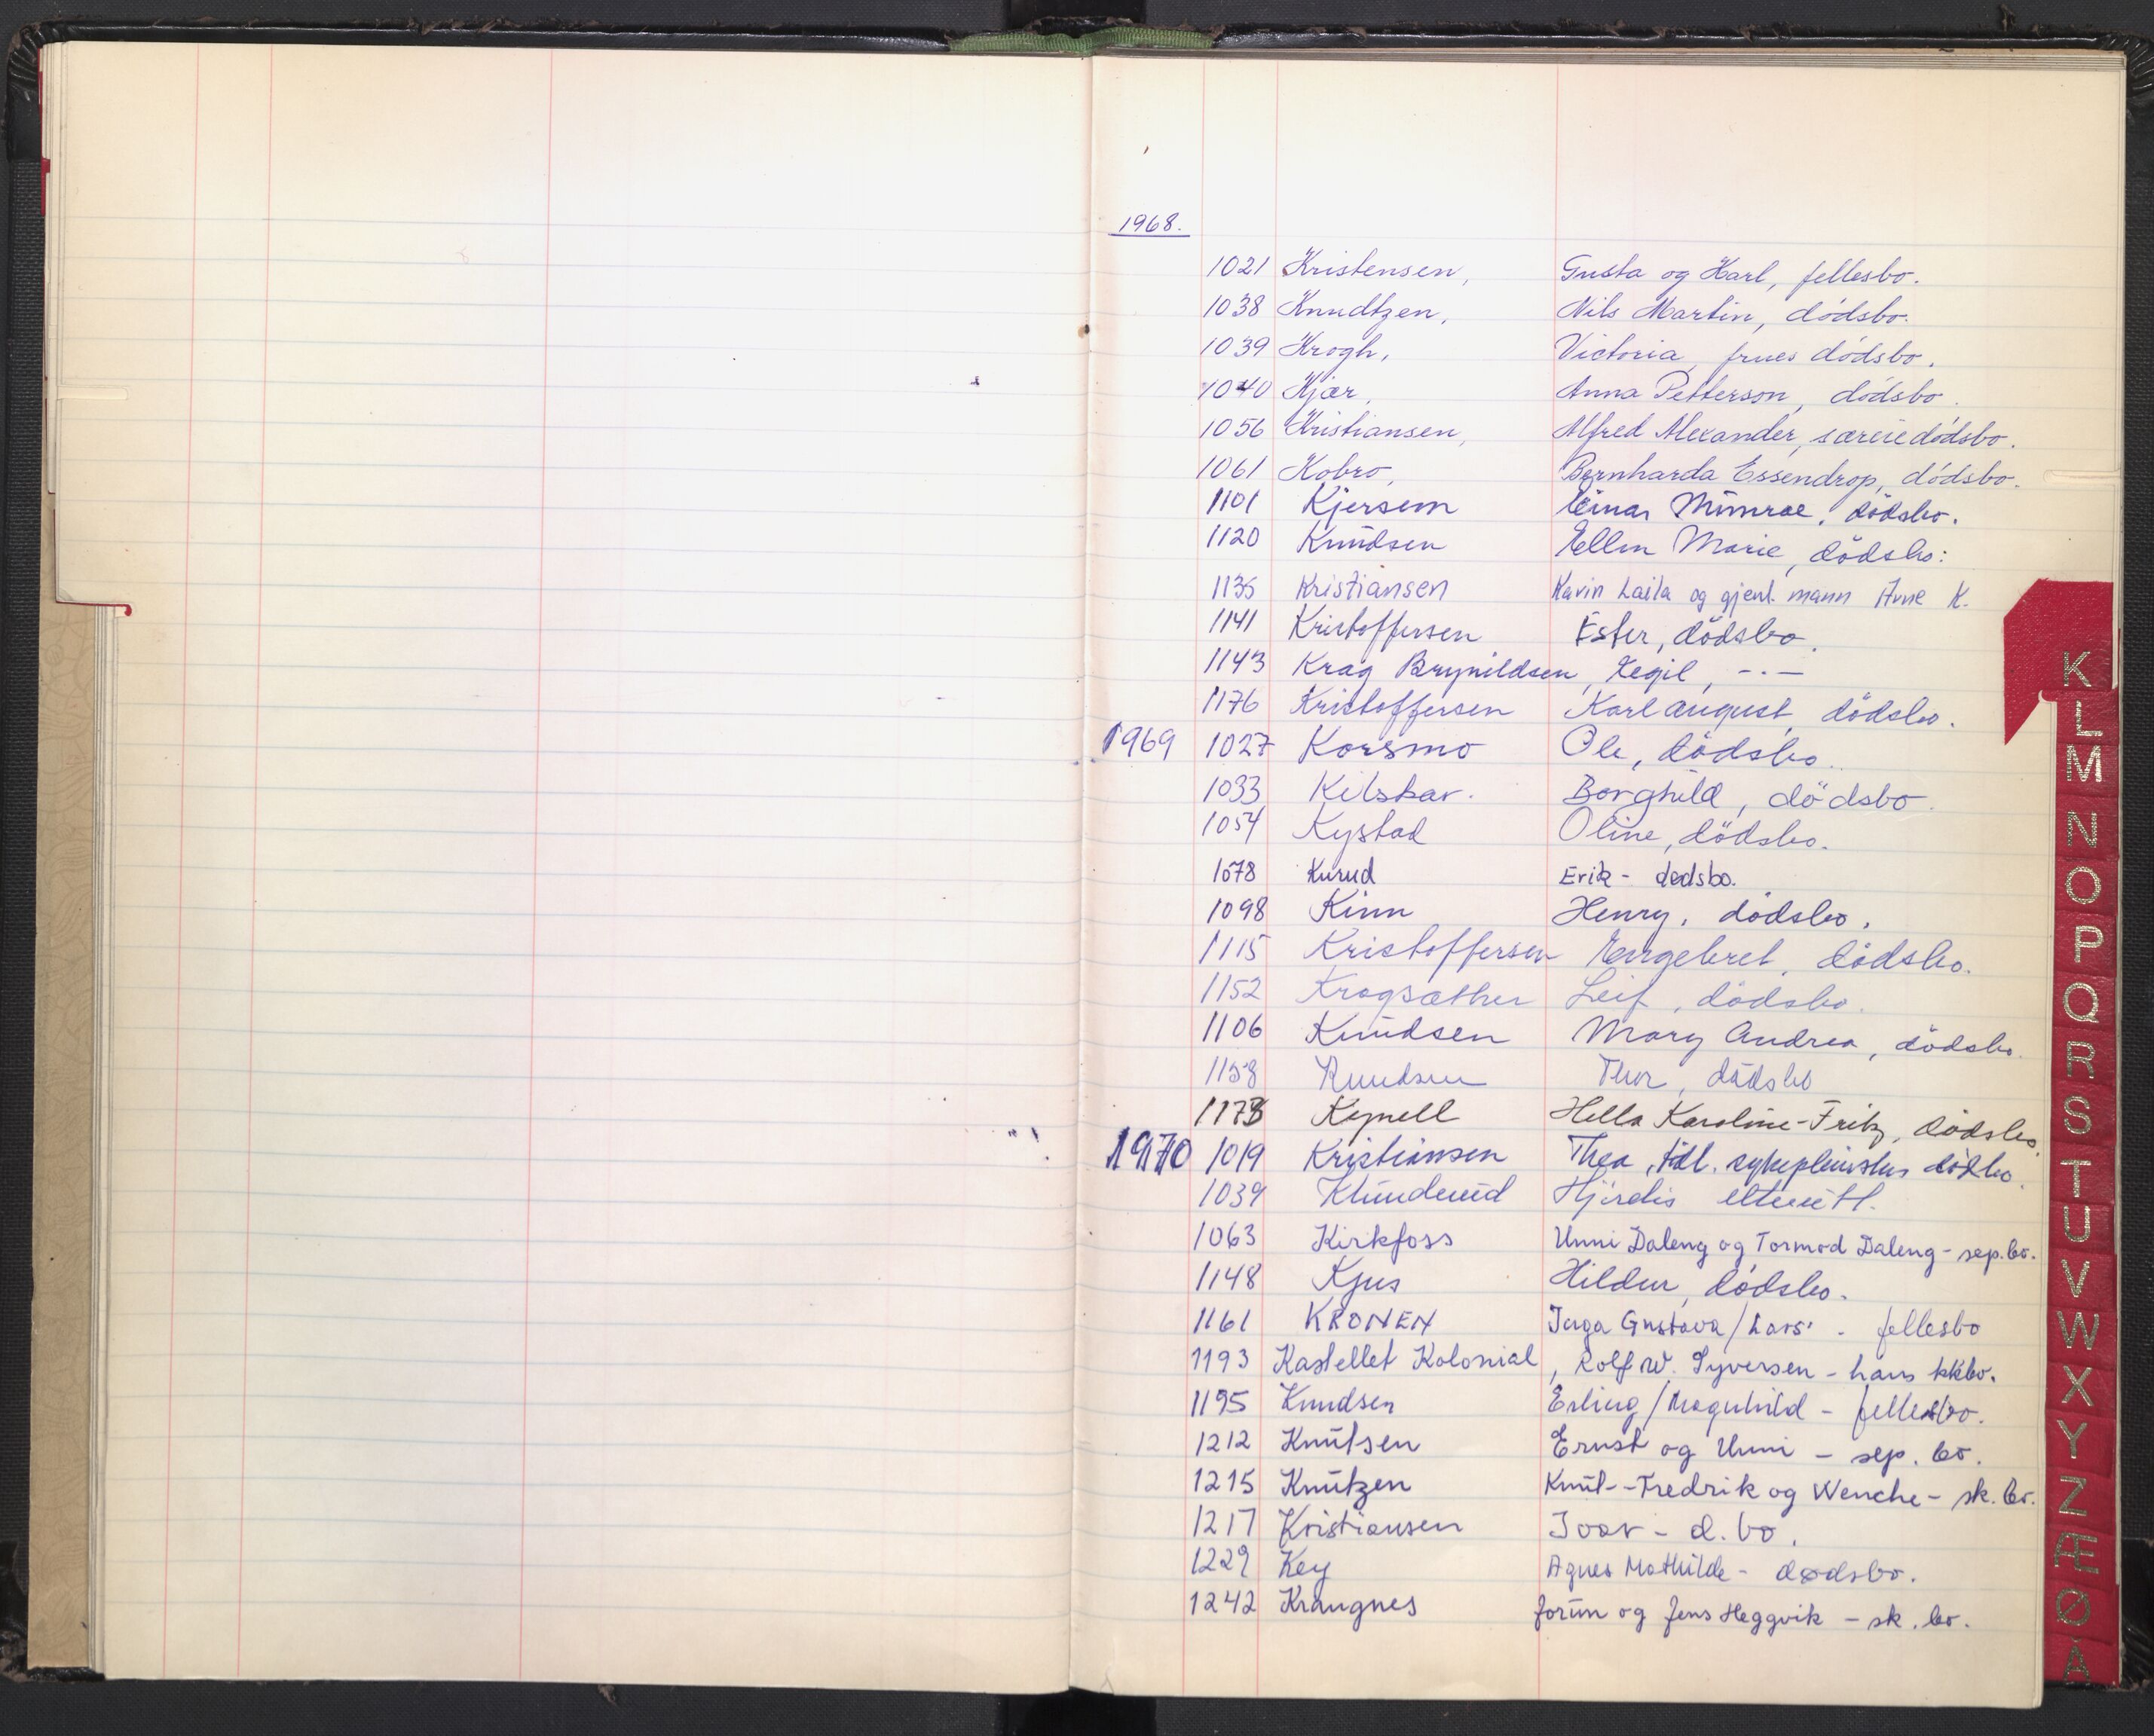 1968.
1021 Kristensen, Gusta og Karl, fellesbo.
1038 Knudtzen, Nils Martin, dödsbo.
1039 Krogh, Victoria, frues dödsbo.
1040 Kjær, Anna Petterson, dödsbo.
1056 Kristiansen, Alfred Alexander, særeiedödsbo.
1061 Kobro, Bernharda Essendrop, dödsbo.
1101 Kjersem Einar Mimrae, dödsbo.
1120 Knudsen Ellen Marie, dödsbo:
1135 Kristiansen Karin Laila og gjenl. mann Arne K.
1141 Kristoffersen Ester, dödsbo.
1143 Krag Brynildsen, Kegil, -.-
1176 Kristoffersen Karl August, dödsbo.
1969 1027 Korsmo Ole, dödsbo.
1033 Kilskar. Borghild, dödsbo.
1054 Kystad Oline, dödsbo.
1078 Kurud Erik - dødsbo.
1098 Kinn Henry, dödsbo.
1115 Kristoffersen Engebret, dödsbo.
1152 Krogsæther Leif, dödsbo.
1106 Knudsen Mary Andrea, dödsbo.
1158 Knudsen Thor, dödsbo
1173 Kynell Hella Karoline-Fritz, dödsbo.
1970 1019 Kristiansen Thea, tidl. sykepleierskes dödsbo.
1039 Hjördis
1063 Kirkfoss Unni Daleng og Tormod Daleng - sep.bo.
1148 Kjus Hildur, dödsbo.
1161 KRONEN Inga Gustava/Lars' - fellesbo
1193 Kastellet Kolonial, Rolf W. Syversen - hans kkbo.
1195 Knudsen Erling/Magnhild - fellesbo.
1212 Knutsen Ernst og Unni - sep. bo.
1215 Knutzen Knut--Fredrik og Wenche - sk. bo.
1217 Kristiansen Ivar - d. bo.
1229 Key Agnes Mathilde - dødsbo.
1242 Krangnes Jorun og Jens Heggvik - sk. bo.
K
L
M
N
O
P
Q
R
S
T
U
V
W
X
Y
Z
Æ
Ø
A